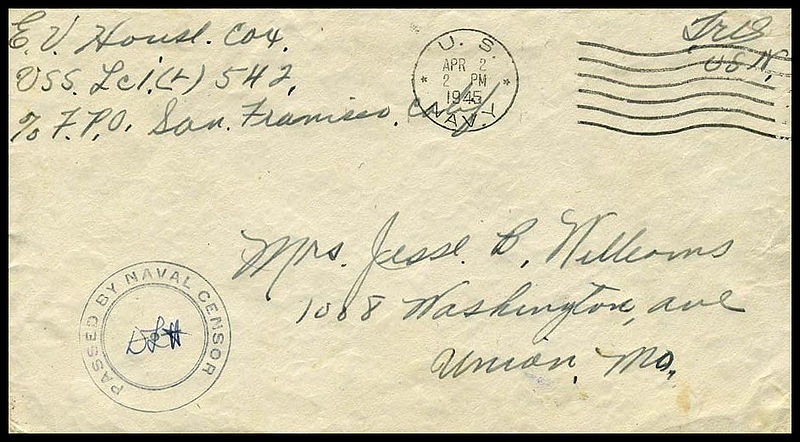 E. V. House. Cox.
USS. Lci.(L) 542,
℅ F.P.O. San. Francisco. Calif.
U. S. NAVY
APR 2
2 PM
1945
Free
USN.
Mrs. Jesse B. Williams
1088 Washington, ave
Union, Mo.
PASSED BY NAVAL CENSOR
DLH